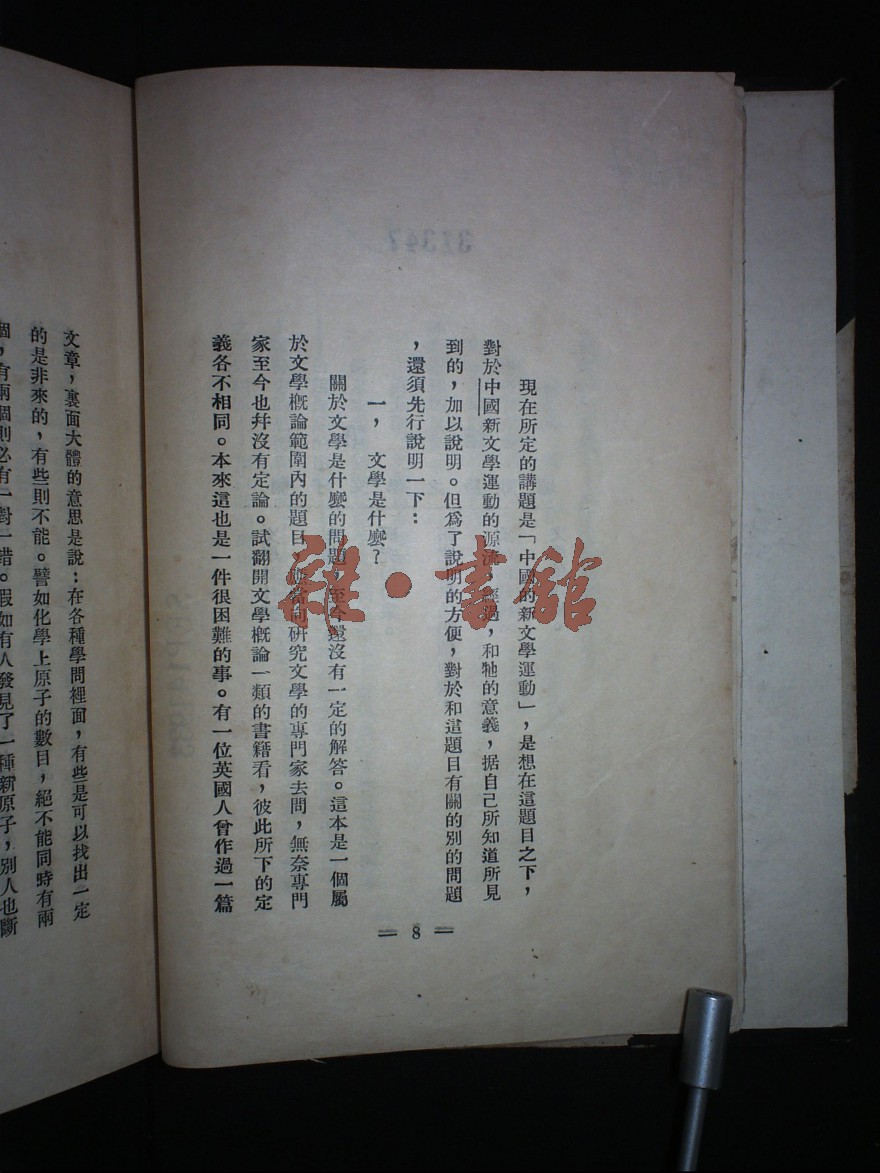 現在所定的講題是「中國的新文學運動」，是想在這題目之下，
對於中國新文學運動的源流 經過，和牠的意義，据自己所知道所見
到的，加以說明。但爲了說明的方便，對於和這題目有關的別的問題
，還須先行說明一下：
一，文學是什麽？
關於文學是什麽的問題 至今還沒有一定的解答。這本是一個屬
於文學槪論範圍內的題目 研究文學的專門家去問，無奈專門
家至今也幷沒有定論。試翻開文學槪論一類的書籍看，彼此所下的定
義各不相同。本來這也是一件很困難的事。有一位英國人曾作過一篇
＝ 8 ＝
文章，裏面大體的意思是說：在各種學問裡面，有些是可以找出一定
的是非來的，有些則不能。譬如化學上原子的數目，絕不能同時有兩
個，有兩個則必有一對一錯。假如有人發見了一種新原子，別人也斷
雜·書舘
31347